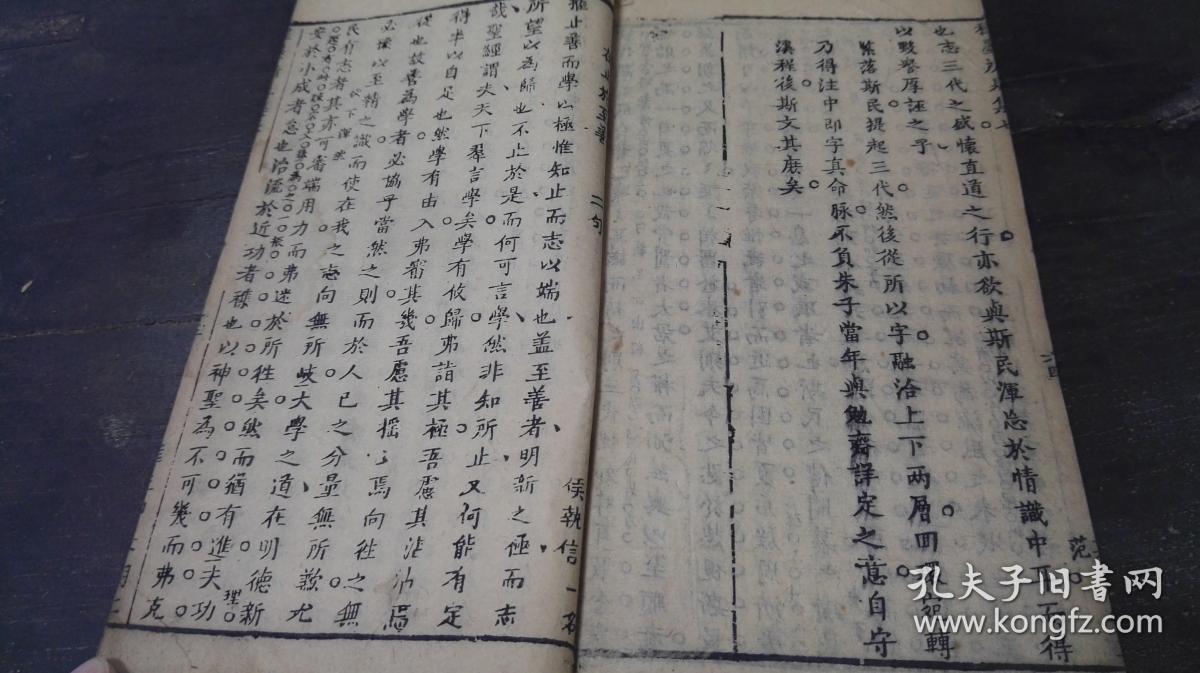 也志三代之盛懷直道之行亦欲與斯民渾忘於情識中而不得
以毀譽厚誣之乎
緊落斯民提起三代然後從所以字融洽上下兩層回環宛轉
乃得注中即字真命脉不負朱子當年與勉齋詳定之意自守
溪程後斯文其庶矣
在止於至善 二句
侯執信一名
推止善而學以極惟知止而志以端也盖至善者明新之極而志
所望以為歸也不止於是而何可言學然非知所止又何能有定
哉聖經謂夫天下羣言學矣學有攸歸弗詣其極吾慮其沾沾焉
得半以自足也然學有由入弗審其幾吾慮其搖〻焉向往之無
從也故善為學者必協乎當然之則而於人己之分量無所歉尤
必懷以至精之識而使在我之志向無所岐大學之道在明德新
民有志者其亦可審端用力而弗迷於所往矣然而猶有進
安於小成者怠也治流於近功者襍也以神聖為不可幾而弗克
孔夫子旧书网
www.kongfz.com